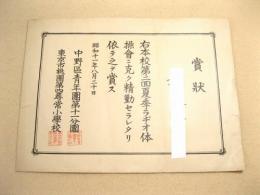 賞狀
右本校第二回夏季ラヂオ体
操會ニ克ク精勤セラレタリ
依テ之ヲ賞ス
昭和十一年八月二十日
中野區青年團第十一分團
東京市桃園第四尋常小學校